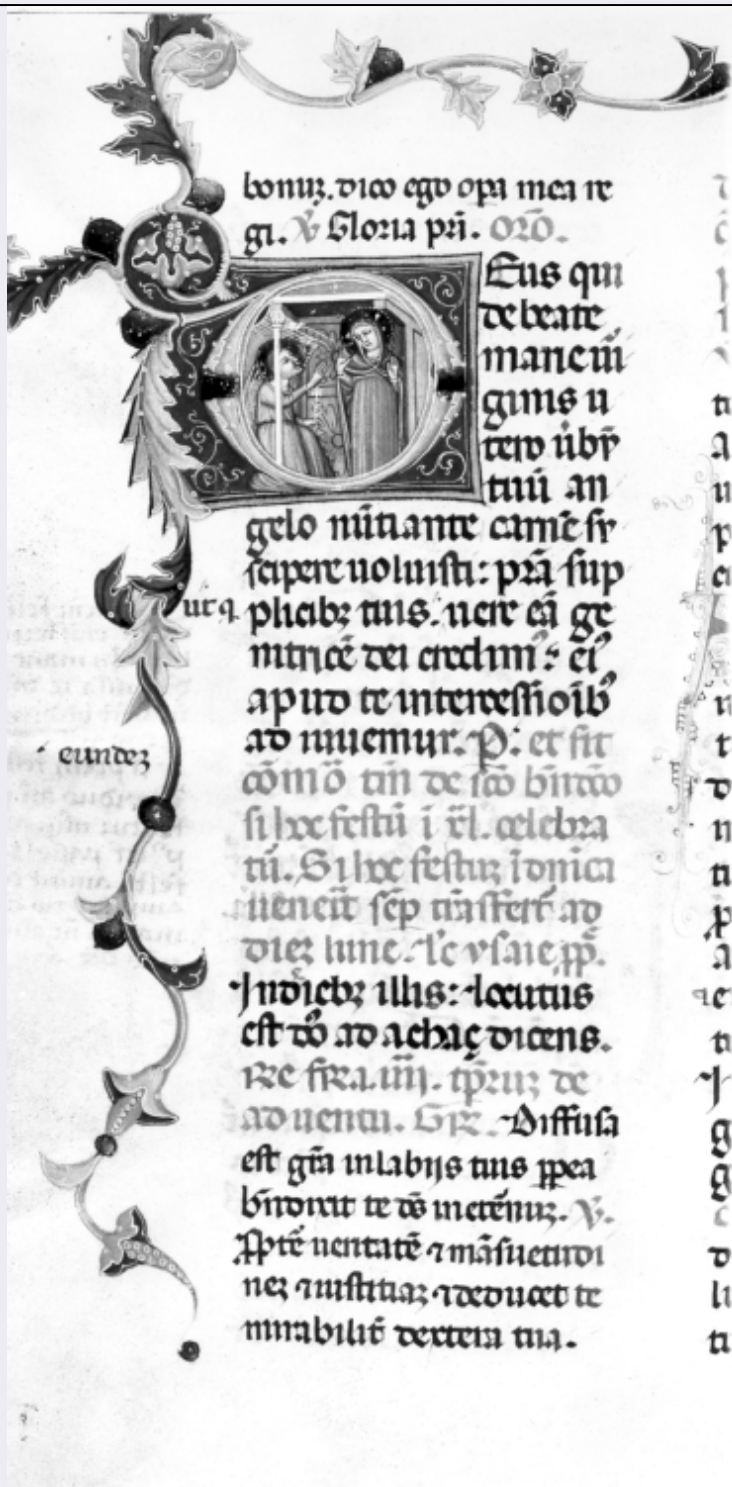 bonuȝ. dico ego opa mea re
gi. ꝟ Gloria pri. Oro.
Eus qui
de beate
marie ůi
ginis u
tero ůbȳ
tuū an
gelo nūtiante carnē sꝰ
scipere uoluisti: pr̄a sup
ut q.
plicibȝ tuis. uere eā ge
nitricē dei credimꝰ: eiꝰ
apud te intercessiōibꝰ
ad iuuemur. P: et sit
i eundeȝ
cōmō tm̄ de sc̄o bn̄dc̄o
si hoc festū i xl. celebra
tū. Si hoc festuȝ i dn̄ica
illenerit sēp trāsfert ad
dieȝ lune. lc̄ ysaie ꝓph.
Indiebȝ illis: locutus
est dn̄s ad achaç dicens.
Re fr̄a. iiii. tp̄ruȝ de
aduentu. Gr̄. Diffusa
est gr̄a inlabijs tuis ꝓpea
bn̄dixit te ds̄ inetēnuȝ. ꝟ.
Ꝓptē ueritatē ⁊ māsuetudi
neȝ ⁊ iustitiaȝ ⁊ deducet te
mirabilit̄ dextera tua.